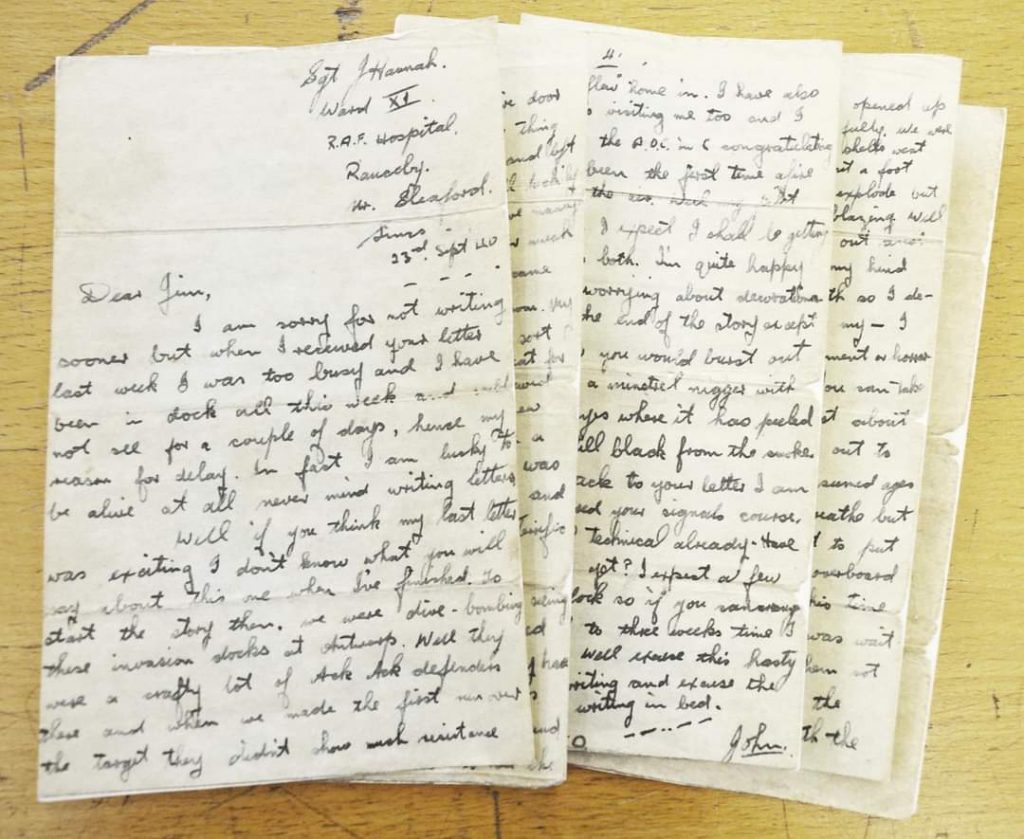 Sgt J Hannah.
Ward XI
R.A.F. Hospital,
Rauceby.
Nr. Sleaford.
Lincs
23rd Sept 40
Dear Jim,
I am sorry for not writing
sooner but when I received your letter
last week I was too busy and I have
been in dock all this week and could
not see for a couple of days, hence my
reason for delay. In fact I am lucky to
be alive at all never mind writing letters
Well if you think my last letter
was exciting I don't know what you will
say about this one when I've finished. To
start the story then, we were dive-bombing
these invasion docks at Antwerp. Well they
were a crafty lot of Ack Ack defenders
there and when we made the first run over
the target they didn't show much resistance
door
thing
and left
week
came
sort
at for
a
was
and
being
4.
flew home in. I have also
visiting me too and I
the A.O.C. in C congratulating
been the first time a fire
the air. With my
I expect I shall be getting
both. I'm quite happy
worrying about decorations
the end of the story except
you would burst out
a minstrel nigger with
eyes where it has peeled
ill black from the smoke
ack to your letter I am
ed your signals course,
technical already. Have
yet? I expect a few
lock so if you can arrange
to three weeks time I
Well excuse this hasty
writing and excuse the
writing in bed.
John.
opened up
fully. We were
shells went
a foot
explode but
blazing well
out
my hind
th so I de-
my — I
ment or horror
ou can take
t about
out to
seemed ages
reathe but
to put
overboard
his time
was wait
hem not
the
th the